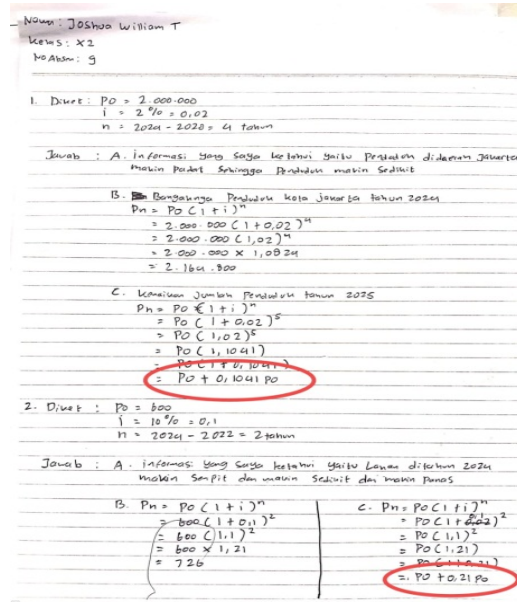 Nama : Joshua William T
Kelas : X2
No Absen : 9
1. Diket : Po = 2.000.000
i = 2% = 0,02
n = 2024 - 2020 = 4 tahun
Jawab : A. informasi yang saya ketahui yaitu Penduduk didaerah Jakarta
makin Padat Sehingga Penduduk makin Sedikit
B. Banyaknya Penduduk kota jakarta tahun 2024
Pn = Po (1 + i)ⁿ
= 2.000.000 (1 + 0,02)⁴
= 2.000.000 (1,02)⁴
= 2.000.000 x 1,0824
= 2.164.800
C. Kenaikan Jumlah Penduduk tahun 2025
Pn = Po (1 + i)ⁿ
= Po (1 + 0,02)⁵
= Po (1,02)⁵
= Po (1,1041)
= Po (1 + 0,1041)
= Po + 0,1041 Po
2. Diket : Po = 600
i = 10% = 0,1
n = 2024 - 2022 = 2 tahun
Jawab : A. informasi yang saya ketahui yaitu Lahan ditahun 2024
makin Sempit dan makin Sedikit dan makin Panas
B. Pn = Po (1 + i)ⁿ
= 600 (1 + 0,1)²
= 600 (1,1)²
= 600 x 1,21
= 726
C. Pn = Po (1 + i)ⁿ
= Po (1 + 0,1)²
= Po (1,1)²
= Po (1,21)
= Po (1 + 0,21)
= Po + 0,21 Po